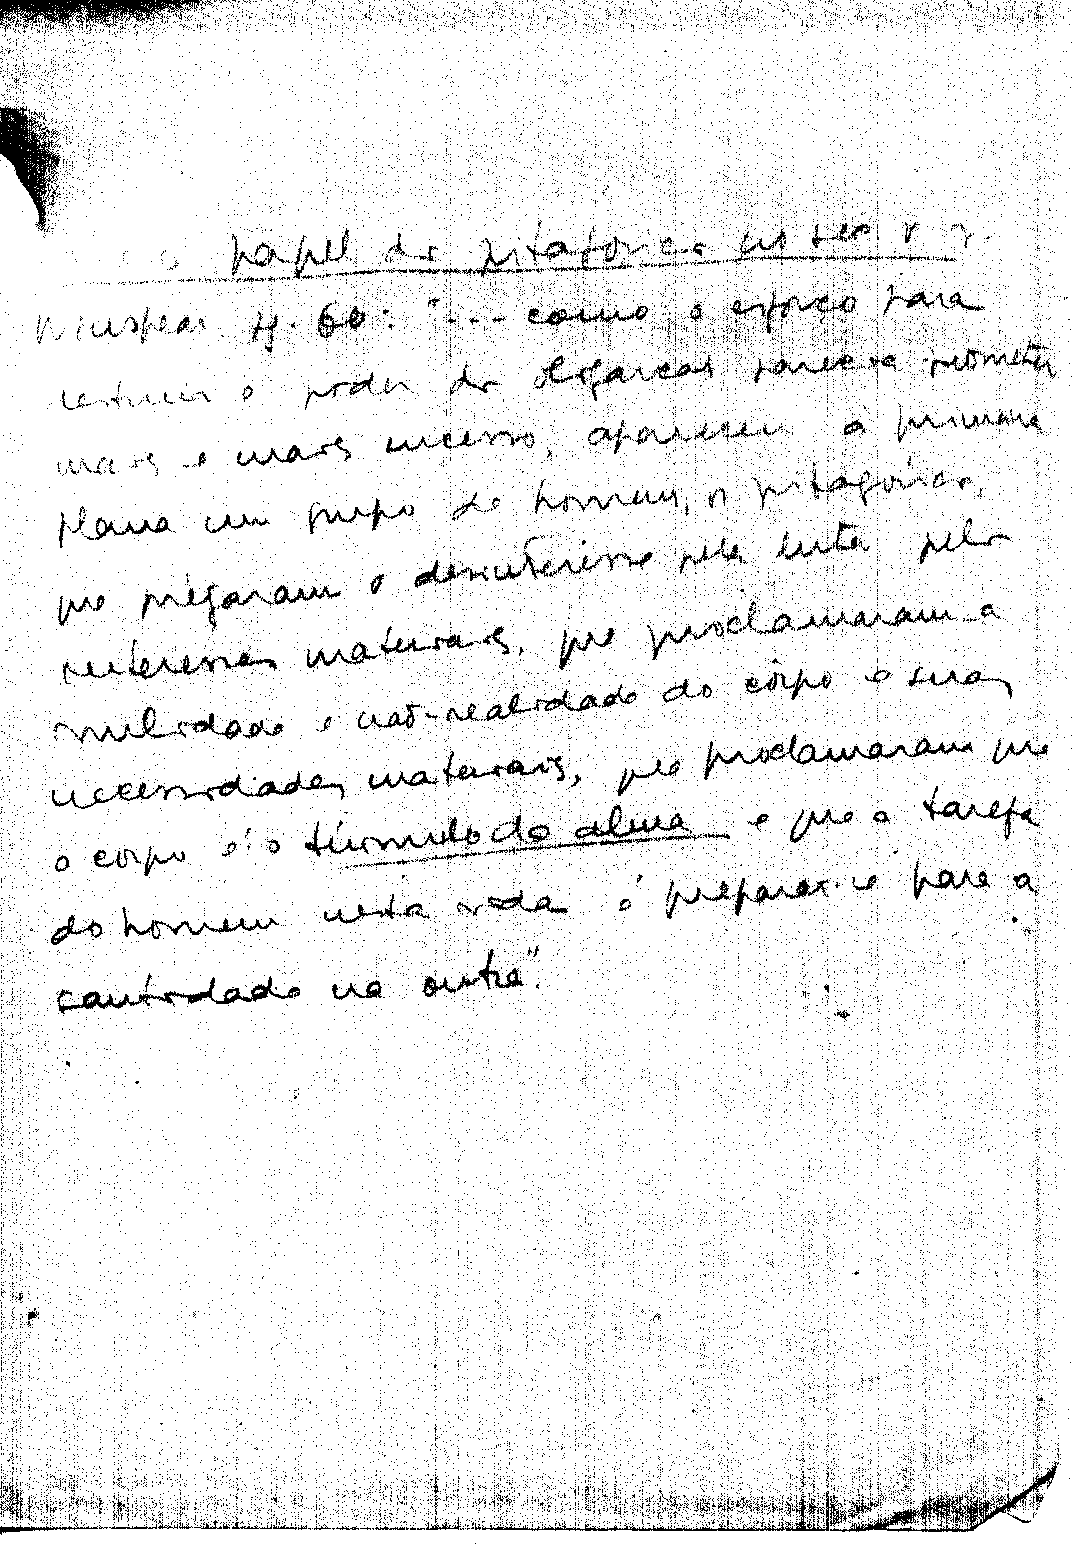 papel dos pitagóricos
Winspear pg. 60: "... como o esforço para
destruir o poder dos oligarcas parecia prometer
mais e mais sucesso, apareceu a primeiro
plano um grupo de homens, os pitagóricos,
que pregaram o desinteresse pela luta pelos
interesses materiais, que proclamaram a
nulidade e não-realidade do corpo e suas
necessidades materiais, que proclamaram que
o corpo é o túmulo da alma e que a tarefa
do homem nesta vida é preparar-se para a
santidade na outra".